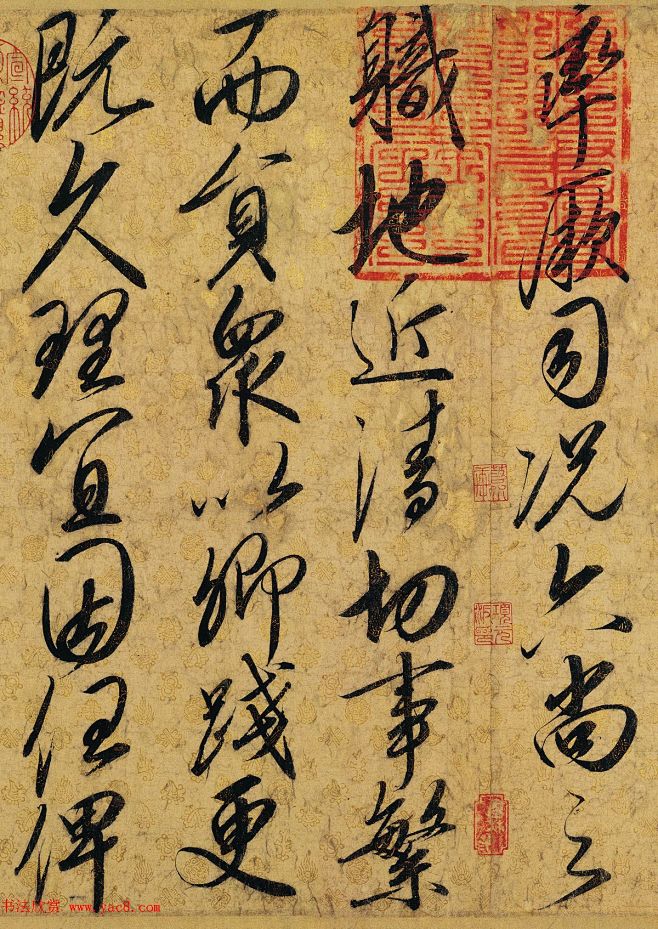 率厥司况六尚之
職地近清切事繁
而員衆以卿踐更
既久理宜因任俾
书法欣赏 www.yac8.com